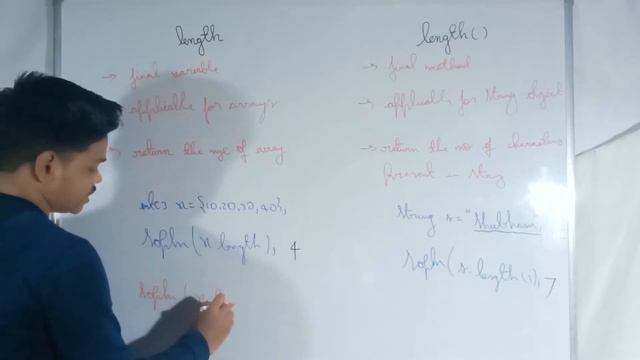 length
→ final variable
applicable for arrays
→ return the size of array
int[] x = {10,20,30,40};
Sopln(x.length); 4
Sopln(x.
length()
→ final method
→ applicable for String object
→ return the no of characters
Present in string
String s = "Shubham";
Sopln(s.length()); 7